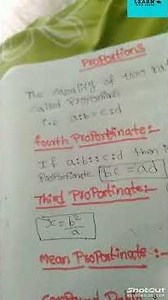 LEARN
Proportions
The equality of two ra
called Proportions
i.e a:b = c:d
fourth Proportinate:-
If a:b :: c:d then
Proportinate bc = ad
Third Proportinate:-
x = b²/a
Mean Proportinate :-
ShotCut